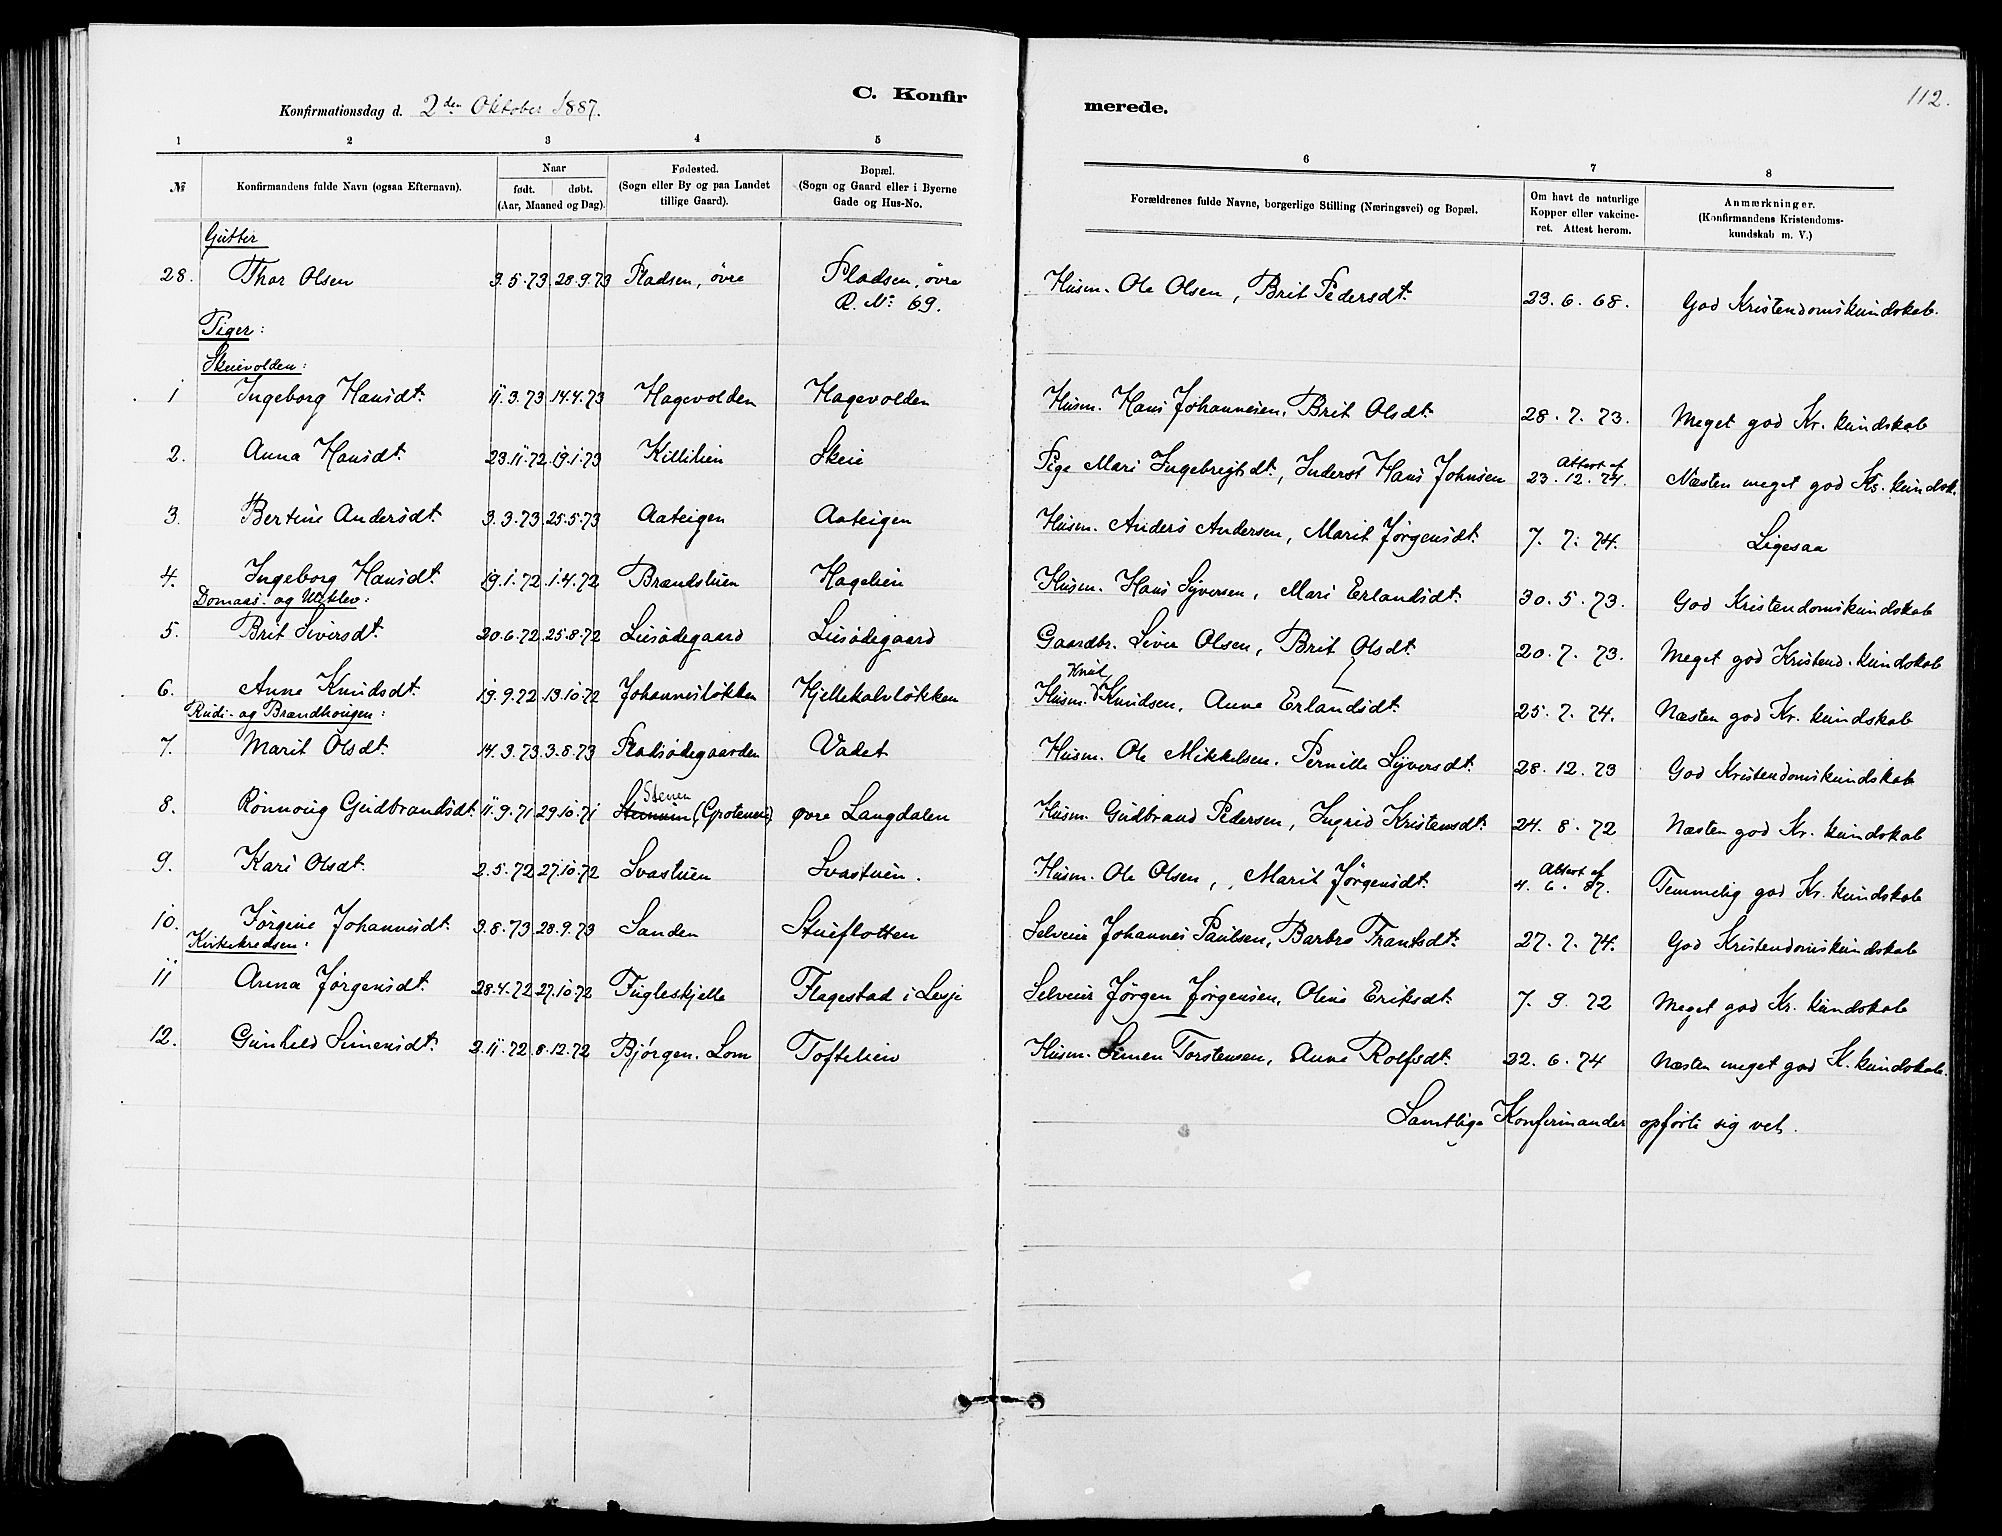 112.
C. Konfir merede.
Konfirmationsdag d. 2den Oktober 1887.
1 2 3 4 5 6 7 8
№ Konfirmandens fulde Navn (ogsaa Efternavn). Naar født. døbt. (Aar, Maaned og Dag). Fødested. (Sogn eller By og paa Landet tillige Gaard). Bopæl. (Sogn og Gaard eller i Byerne Gade og Hus-No. Forældrenes fulde Navne, borgerlige Stilling (Næringsvei) og Bopæl. Om havt de naturlige Kopper eller vakcineret. Attest herom. Anmærkninger. (Konfirmandens Kristendomskundskab m. V.)
Gutter
28. Thor Olsen 3.5.73. 28.9.73 Pladsen, øvre Pladsen, øvre R. No: 69. Husm. Ole Olsen, Brit Pedersdt. 23. 6. 68. God Kristendomskundskab.
Piger:
Skeievolden:
1 Ingeborg Hansdt. 11.3.73 14.4.73 Hagevolden Hagevolden Husm. Hans Johannesen, Brit Olsdt. 28. 7. 73. Meget god Kr. kundskab
2. Anna Hansdt. 23.11.72 19.1.73 Killilien Skeie Pige Mari Ingebrigtdt., Inderst Hans Johnsen Attest af 23. 12. 74. Næsten meget god Kr. kundsk.
3. Bertine Andersdt. 3.3.73 25.5.73 Aateigen Aateigen Husm. Anders Andersen, Marit Jørgensdt. 7. 7. 74. Ligesaa
4. Ingeborg Hansdt. 19.1.72 1.4.72 Brændstuen Hagelien Husm. Hans Syversen, Mari Erlandsdt. 30. 5. 73. God Kristendomskundskab
Domaas- og Utklev:
5. Brit Siversdt. 20.6.72 25.8.72 Liisødegaard Liisødegaard Gaardbr. Siver Olsen, Brit Olsdt. 20. 7. 73. Meget god Kristend. kundskab
6. Anne Knudsdt. 19.9.72 13.10.72 Johannesløkken Hjellekalvløkken Husm. Knut Knudsen, Anne Erlandsdt. 25. 7. 74. Næsten god Kr. kundskab
Rudi- og Brændhougen:
7. Marit Olsdt. 14.3.73 3.8.73 Pladsødegaarden Vadet Husm. Ole Mikkelsen, Pernille Syversdt. 28. 12. 73 God Kristendomskundskab
8. Rønnoug Gudbrandsdt. 11.9.71 29.10.71 Stenen (Grotenen) øvre Langdalen Husm. Gudbrand Pedersen, Ingrid Kristensdt. 24. 8. 72 Næsten god Kr. kundskab
9. Kari Olsdt. 2.5.72 27.10.72 Svastuen Svastuen. Husm. Ole Olsen, Marit Jørgensdt. Attest af 4. 6. 87. Temmelig god Kr. kundskab
10. Jørgine Johannesdt. 3.8.73 28.9.73 Sanden Stueflotten Selveier Johannes Paulsen, Barbro Frantsdt. 27. 7. 74. God Kristendomskundskab
Kirkekredsen:
11 Anna Jørgensdt. 28.4.72 27.10.72 Fugleskjelle Flagestad i Lesje Selveier Jørgen Jørgensen, Oline Eriksdt. 7. 9. 72 Meget god Kr. kundskab
12. Gunhild Simensdt. 2.11.72 8.12.72 Bjørgen. Lom Toftelien Husm. Simen Torstensen, Anne Rolfsdt. 22. 6. 74 Næsten meget god K. kundskab.
Samtlige Konfirmander opførte sig vel.